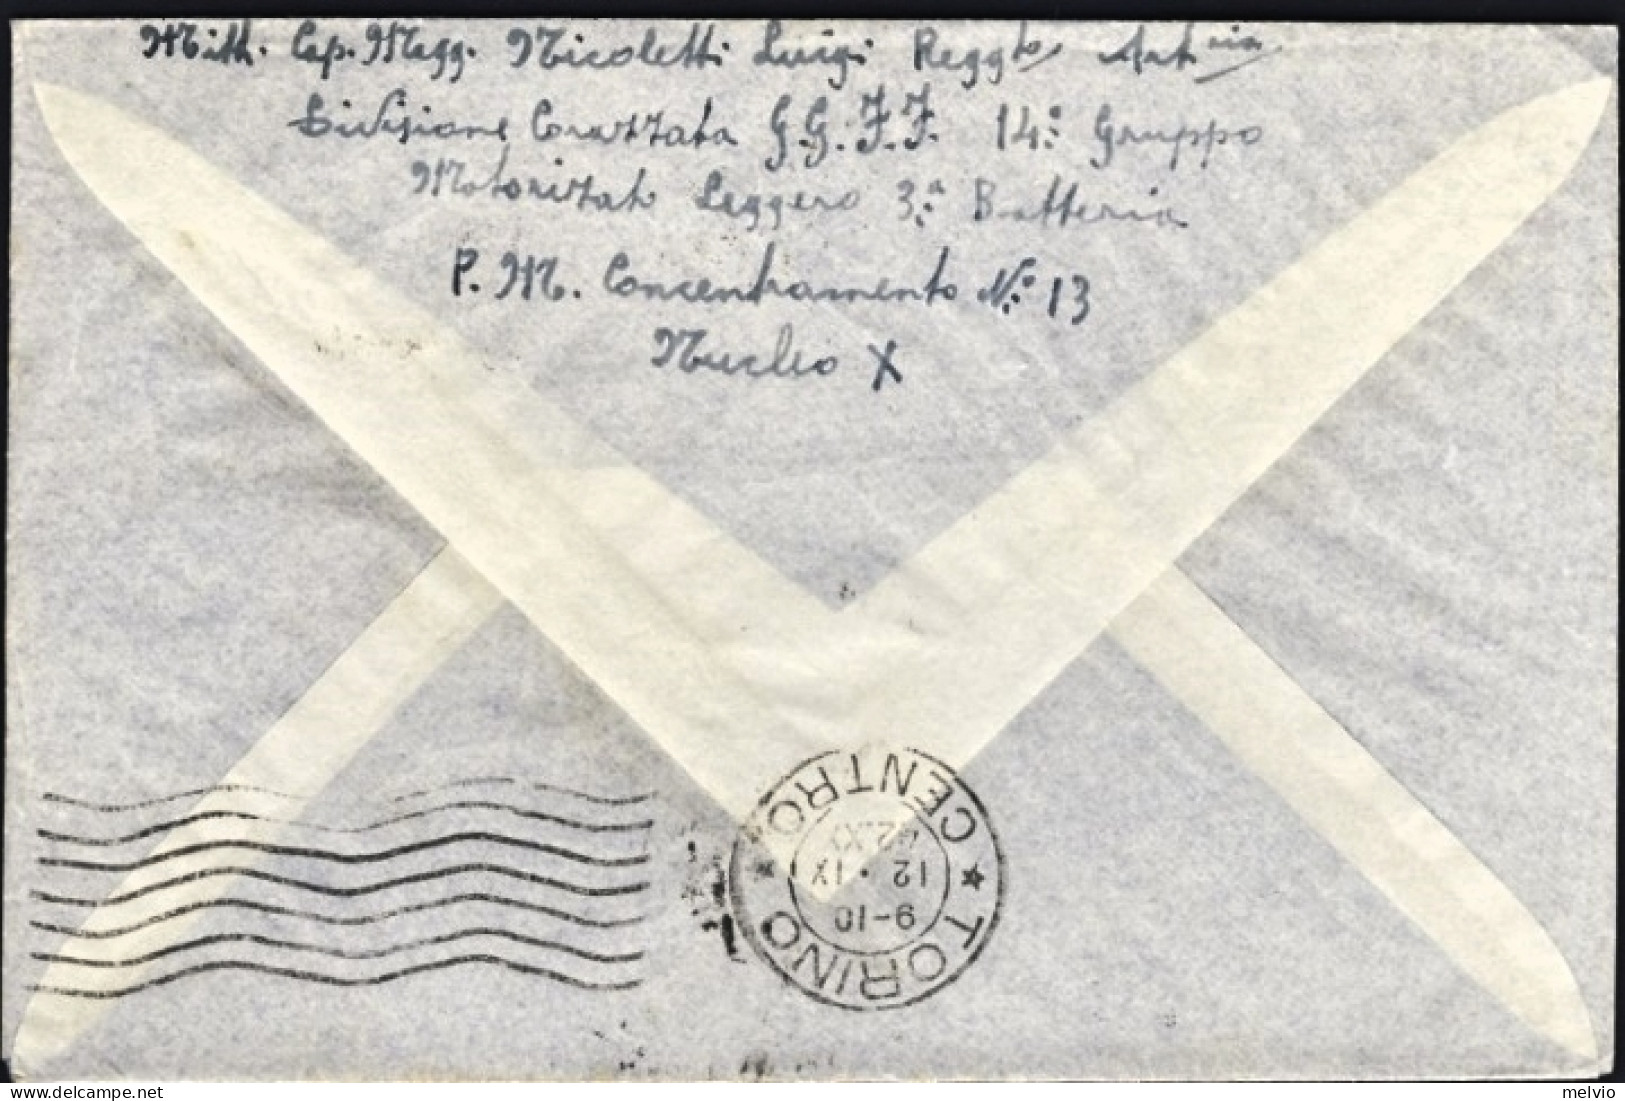 Mitt. Cap. Magg. Nicoletti Luigi Regg.to Art.ria
Divisione Corazzata G.G.F.F. 14° Gruppo
Motorizzato Leggero 3.a Batteria
P. M. Concentramento N.° 13
Nucleo X
TORINO CENTRO
9-10
12 • IX
42.XX
delcampe.net
melvio